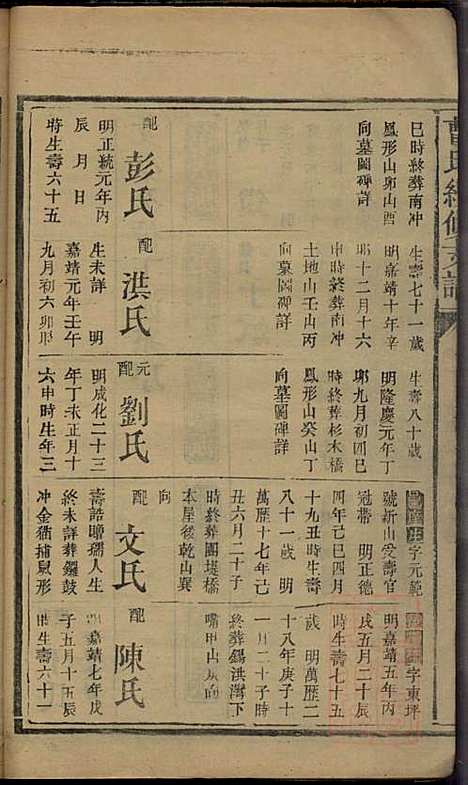 曹氏續修支譜
巳時終葬南冲
鳳形山卯山酉
向墓圖碑詳
配彭氏
明正統元年丙
辰月日
時生壽六十五
生壽七十一歲
明嘉靖十年辛
卯十二月十六
申時終葬南冲
土地山壬山丙
向墓圖碑詳
配洪氏
生未詳明
嘉靖元年壬午
九月初六卯時
生壽八十歲
明隆慶元年丁
卯九月初四巳
時終葬杉木橋
鳳形山癸山丁
向墓圖碑詳
元配劉氏
明成化二十三
年丁未正月十
六申時生年三
字元範
號新山受壽官
冠帶明正德
四年己巳四月
十九丑時生壽
八十一歲明
萬歷十七年己
丑六月二十子
時終葬團堪橋
本屋後乾山巽
向
配文氏
壽誥贈孺人生
終未詳葬鑼鼓
冲金猫捕鼠形
字東坪
明嘉靖五年丙
戌五月二十辰
時生壽七十五
歲明萬歷二
十八年庚子十
一月二十子時
終葬錫洪灣下
嘴甲山庚向
配陳氏
明嘉靖七年戊
子五月十五辰
時生壽六十一